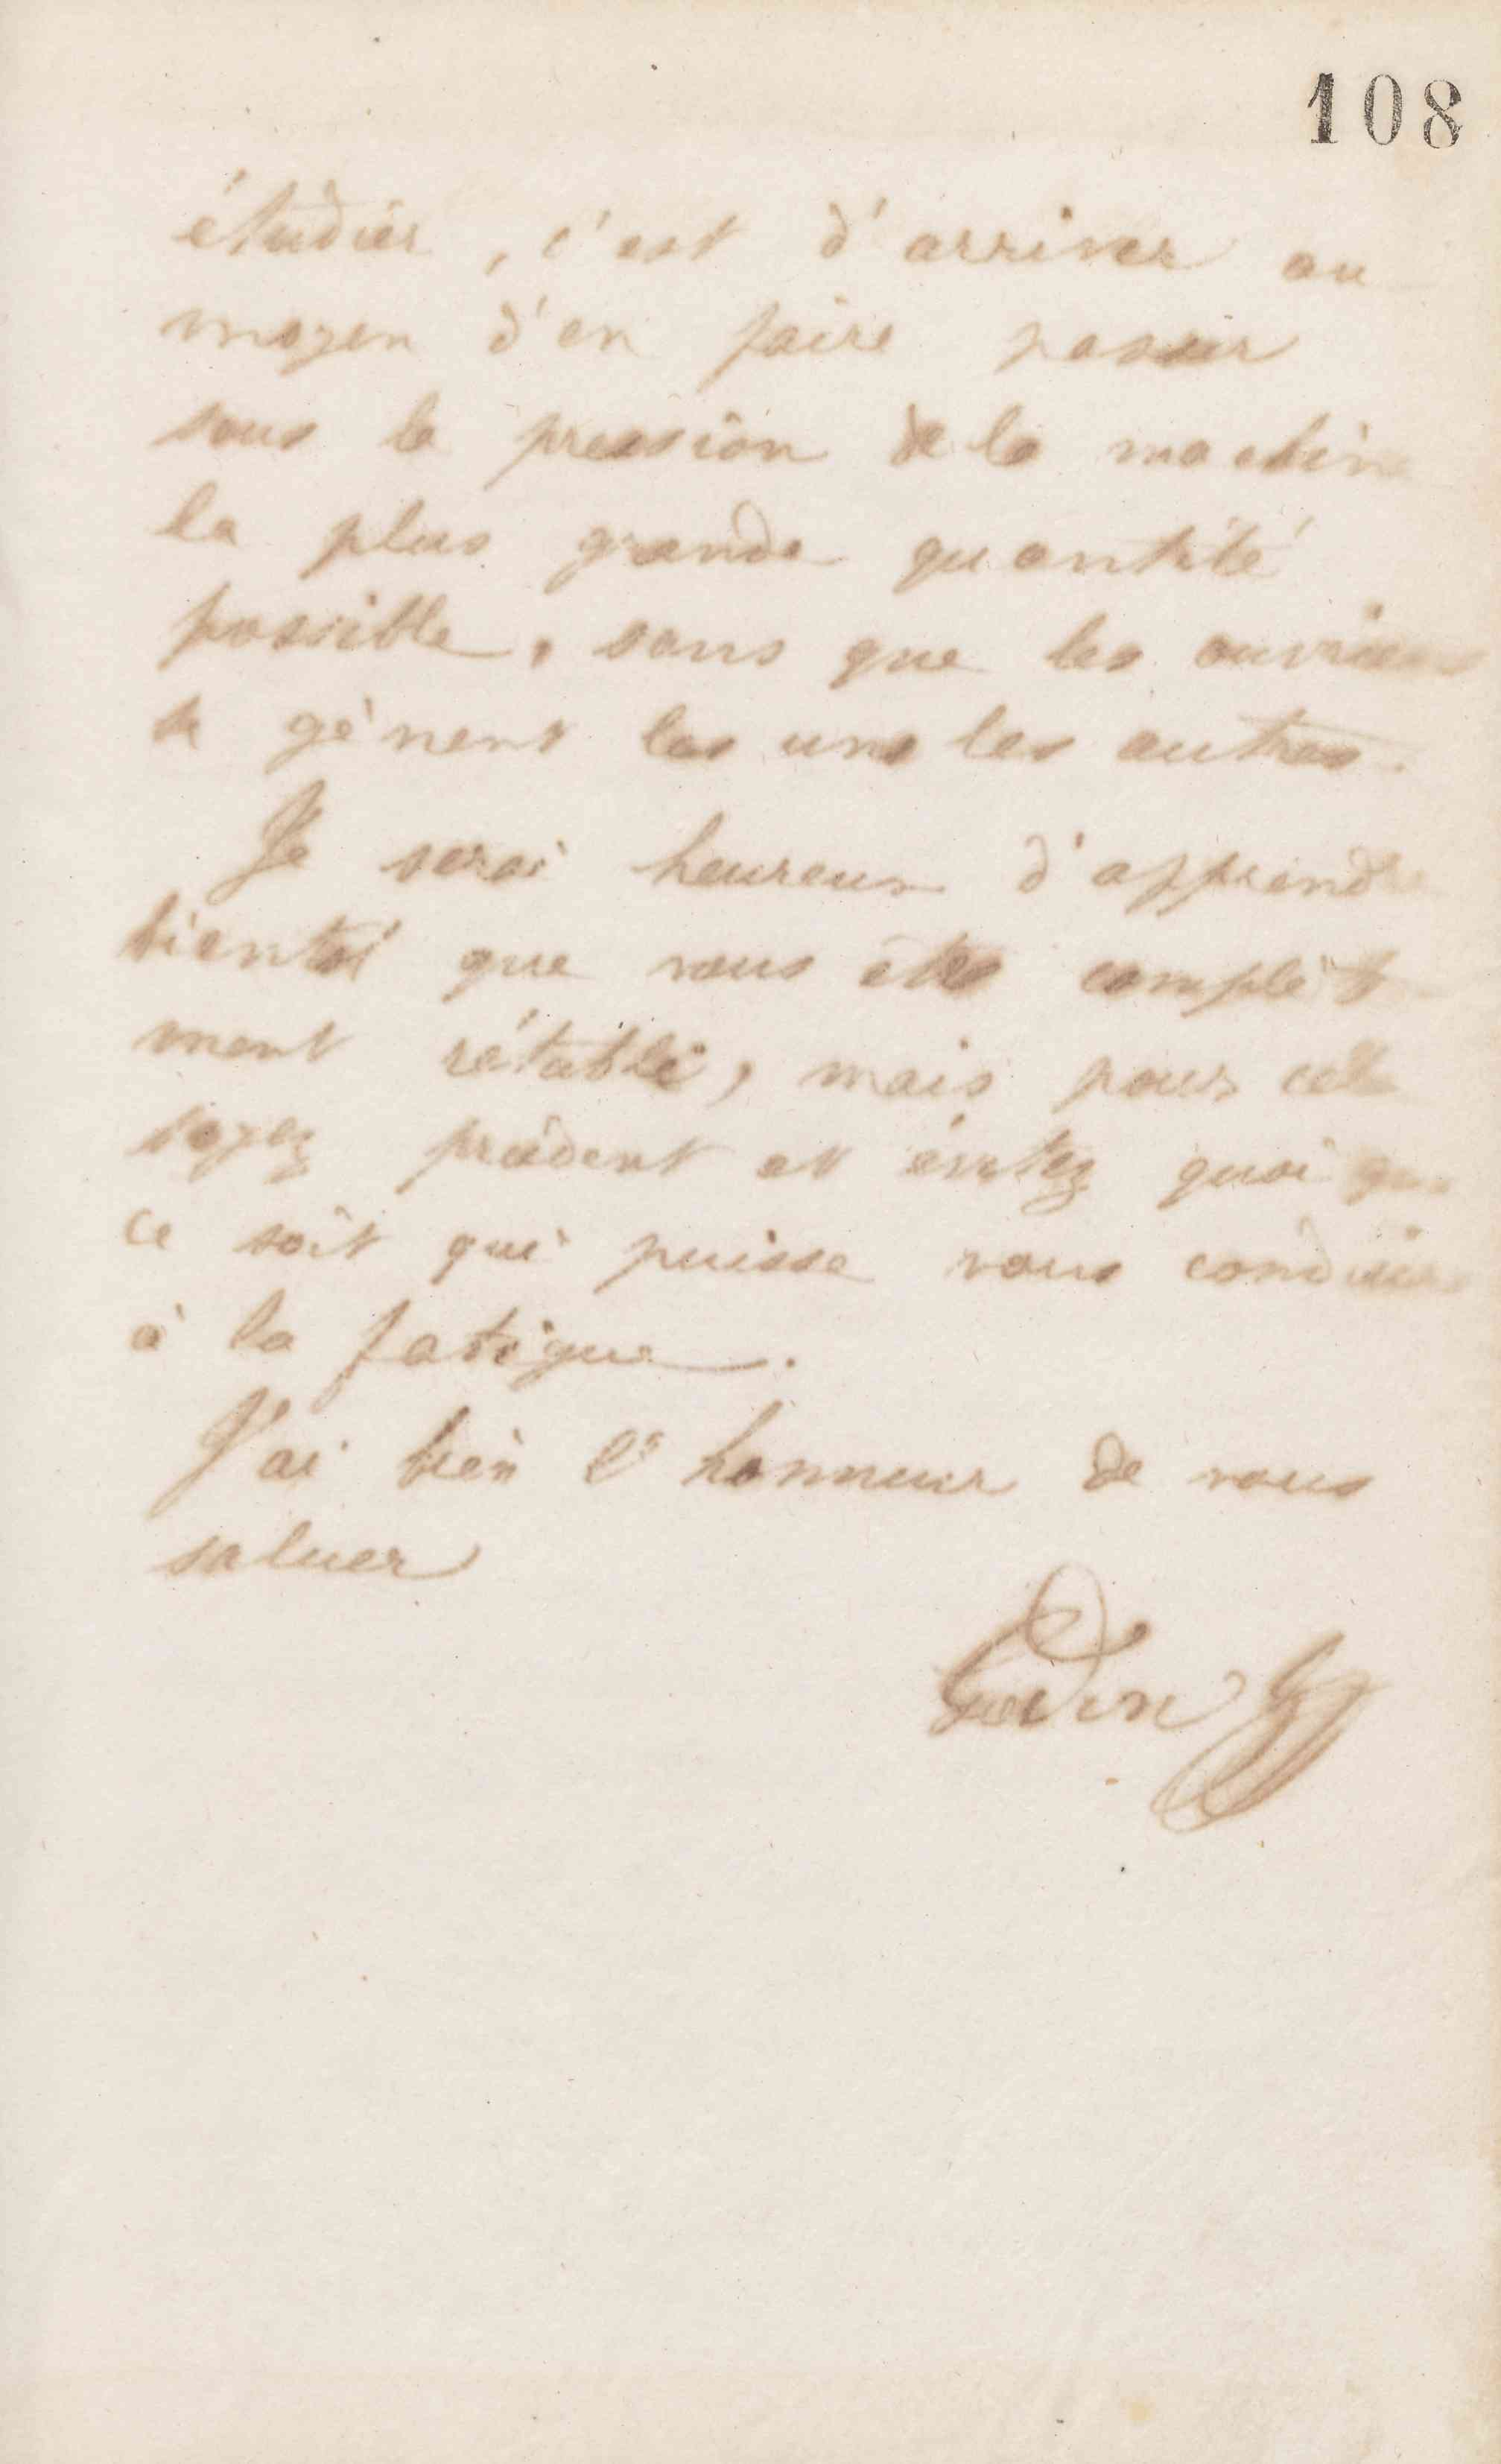 108
étudier, c'est d'arriver au
moyen d'en faire passer
sous la pression de la machine
la plus grande quantité
possible, sans que les ouvriers
se gênent les uns les autres.
Je serai heureux d'apprendre
bientôt que vous êtes complète
ment rétabli, mais pour cela
soyez prudent et évitez quoi que
ce soit qui puisse vous conduire
à la fatigue.
J'ai bien l'honneur de vous
saluer
Godin